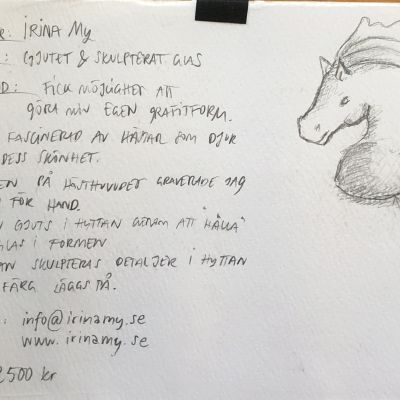 R: IRINA MY
: GJUTET & SKULPTERAT GLAS
D: FICK MÖJLIGHET ATT
GÖRA MIN EGEN GRAFITFORM.
FASCINERAD AV HÄSTAR SOM DJUR
DESS SKÖNHET.
EN PÅ HÄSTHUVUDET GRAVERADE JAG
FÖR HAND.
GJUTS I HYTTAN GENOM ATT "HÄLLA"
GLAS I FORMEN
AN SKULPTERAS DETALJER I HYTTAN
FÄRG LÄGGS PÅ.
: info@irinamy.se
www.irinamy.se
2500 kr